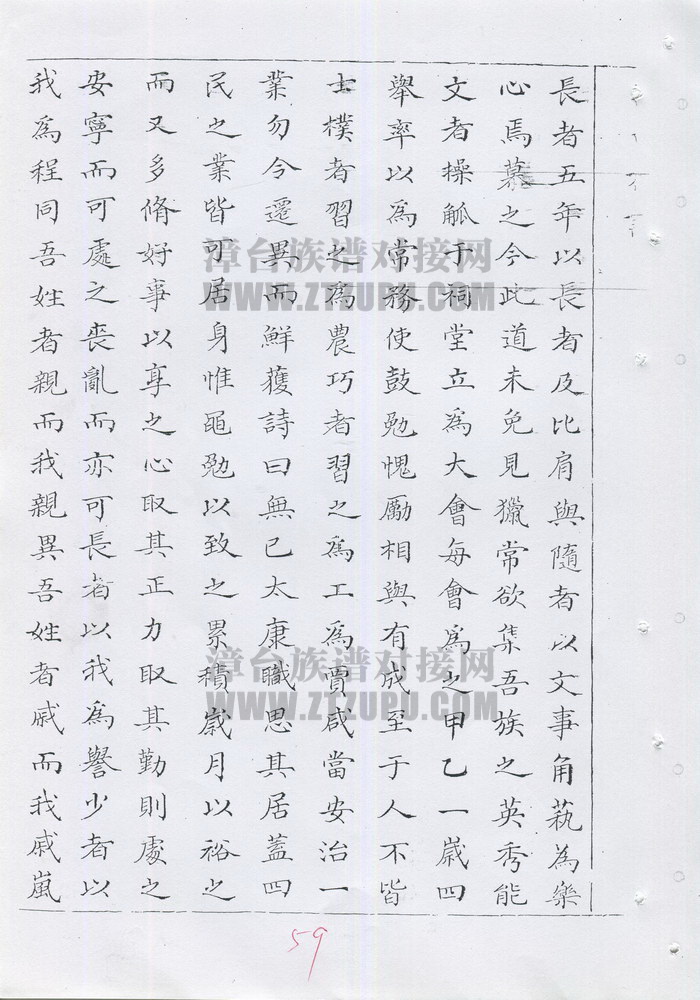 長者五年以長者及比肩與隨者以文事角萟為樂
心焉慕之今此道未免見獵常欲集吾族之英秀能
文者操觚于祠堂立為大會每會為之甲乙一歲四
舉率以為常務使鼓勉愧勵相與有成至于人不皆
士樸者習之為農巧者習之為工為賈咸當安治一
業勿令遷異而鮮獲詩曰無已太康職思其居蓋四
民之業皆可居身惟黽勉以致之累積歲月以裕之
而又多脩好事以享之心取其正力取其勤則處之
安寧而可處之喪亂而亦可長者以我為譽少者以
我為程同吾姓者親而我親異吾姓者戚而我戚嵐
漳台族谱对接网
WWW.ZTZUPU.COM
漳台族谱对接网
WWW.ZTZUPU.COM
59